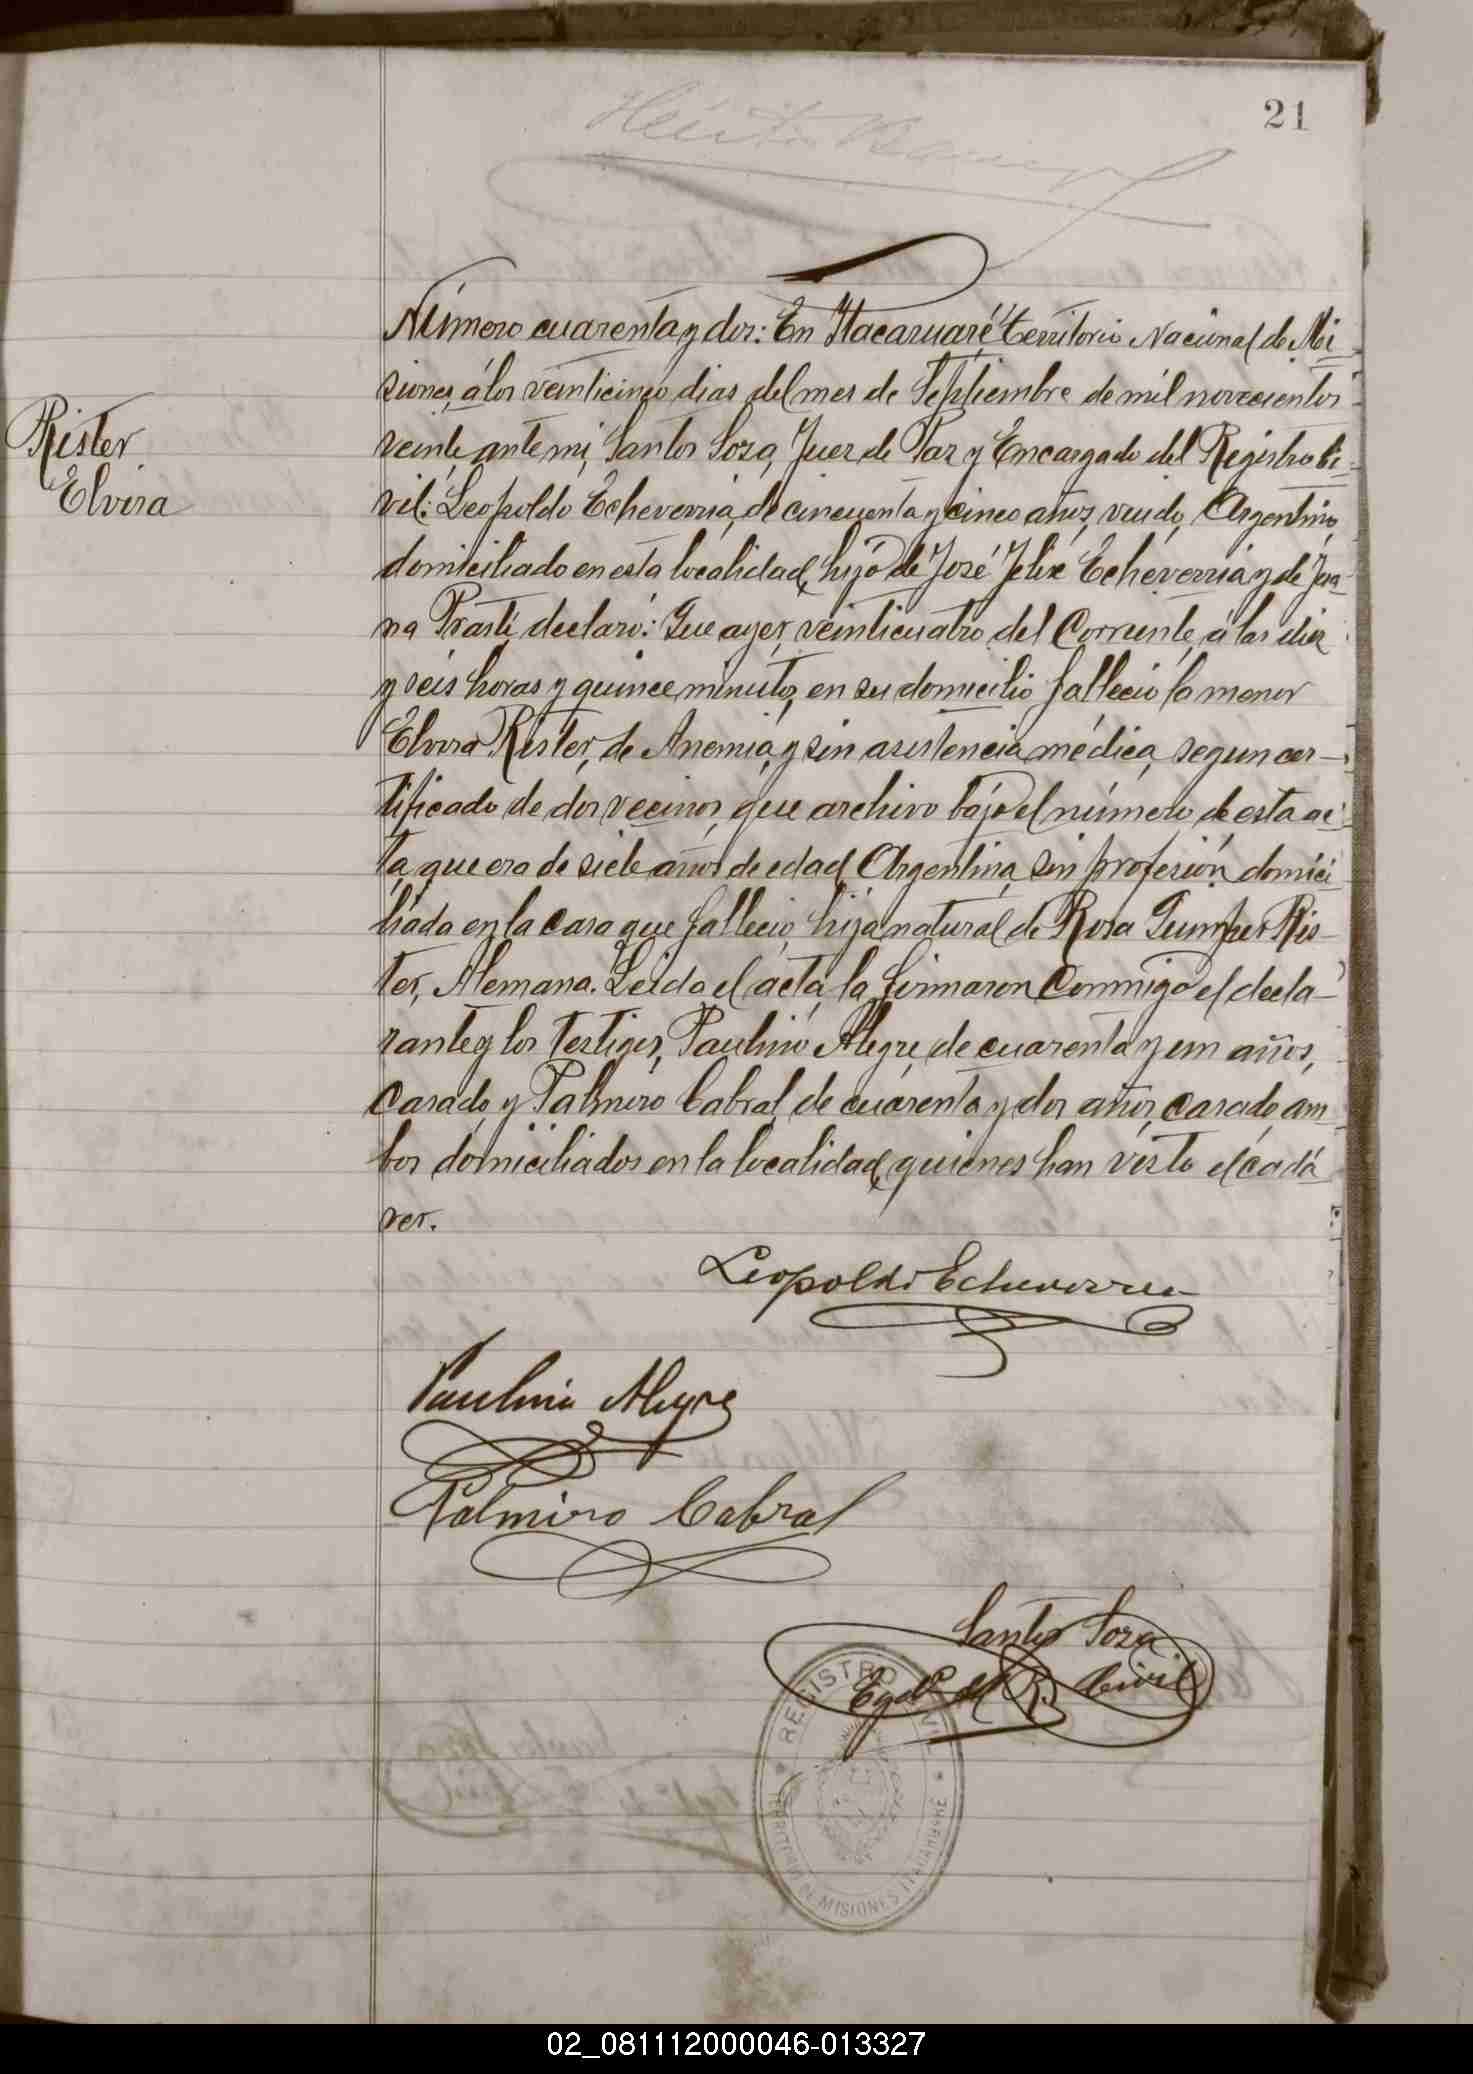 21
Número cuarenta y dos: En Itacaruaré, territorio Nacional de Mi-
siones, á los veinticinco dias del mes de Septiembre de mil novecientos
Rister
Elvira
veinte, ante mi, Santos Soza, Juez de Paz y Encargado del Registro Ci-
vil: Leopoldo Echeverria, de cincuenta y cinco años, viudo, Argentino,
domiciliado en esta localidad, hijo de José Felix Echeverria y de Jua-
na Prasti declaró: Que ayer, veinticuatro del Corriente, á las diez
y seis horas y quince minutos, en su domicilio falleció la menor
Elvira Rister, de Anemia, y sin asistencia médica, segun cer-
tificado de dos vecinos, que archivo bajo el número de esta ac-
ta, que era de siete años de edad, Argentina, sin profesión, domici
liada en la casa que fallecio, hija natural de Rosa Ris-
ter, Alemana. Leida el acta, la firmaron Conmigo el decla-
rante y los testigos, Paulino Alegre, de cuarenta y un años,
Casado, y Palmiro Cabral, de cuarenta y dos años, casado, am
bos domiciliados en la localidad, quienes han visto el cadá
ver.
Leopoldo Echeverria
Paulino Alegre
Palmiro Cabral
Santos Soza
Egdo. del R. Civil
REGISTRO CIVIL
TERRITORIO DE MISIONES ITACARUARE
02_081112000046-013327